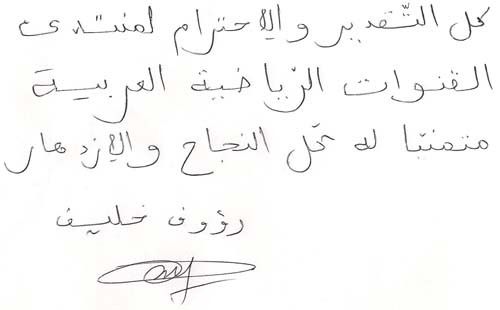 كل التّقدير والإحترام لمنتدى
القنوات الرّياضية العربية
متمنيّا له كل النجاح والإزدهار
رؤوف خليف